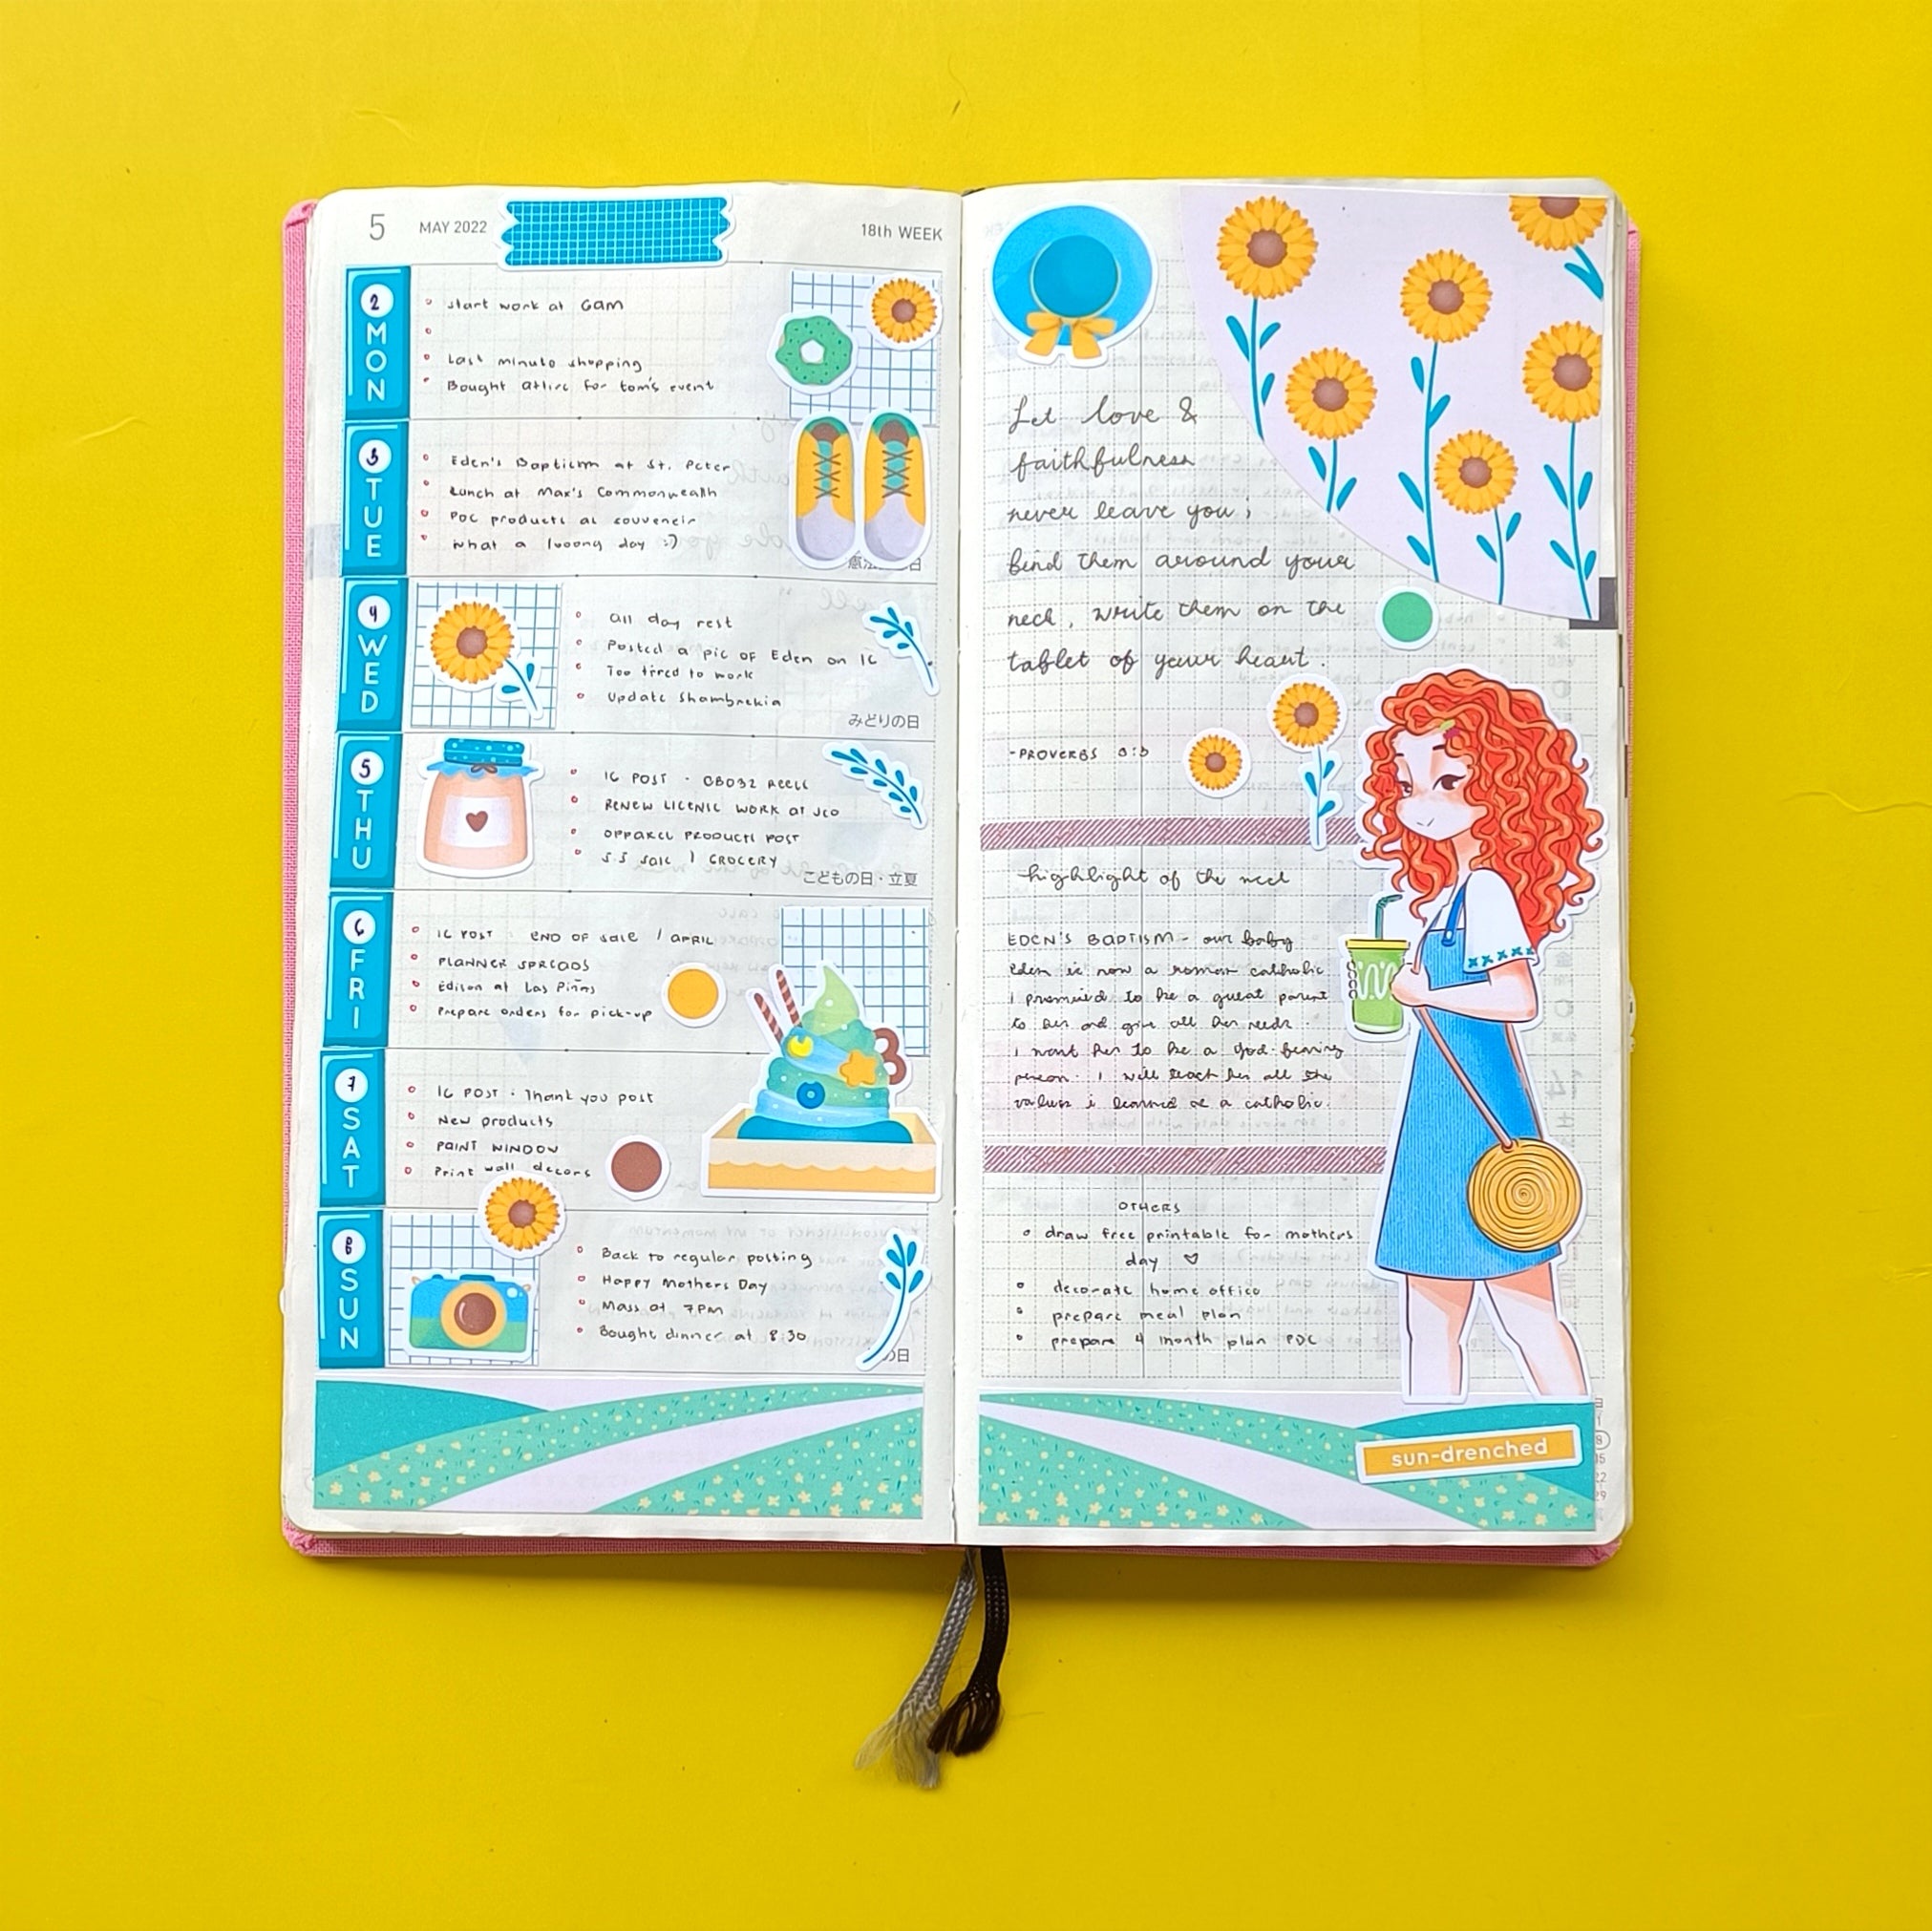 5 MAY 2022
18th WEEK
2 MON
Start work at 6am
Last minute shopping
Bought attire for tom's event
3 TUE
Eden's Baptism at St. Peter
Lunch at Max's Commonwealth
PDC products as souvenir
What a looong day :)
憲法 日
4 WED
All day rest
Posted a pic of Eden on IG
Too tired to work
Update Shambrekia
みどりの日
5 THU
IG POST - CB032 REELS
RENEW LICENSE WORK at JCO
APPAREL PRODUCTS POST
S.S SALE | GROCERY
こどもの日・立夏
6 FRI
IG POST : END OF SALE / APRIL
PLANNER SPREADS
Edison at Las Piñas
Prepare orders for pick-up
7 SAT
IG POST : Thank you post
New products
PAINT WINDOW
Print wall decors
8 SUN
Back to regular posting
Happy Mothers Day
Mass at 7PM
Bought dinner at 8:30
の日
Let love &
faithfulness
never leave you;
bind them around your
neck, write them on the
tablet of your heart.
-PROVERBS 3:3
highlight of the week
EDEN'S BAPTISM - our baby
Eden is now a roman catholic.
I promised to be a great parent
to her and give all her needs.
I want her to be a God-fearing
person. I will teach her all the
values i learned as a catholic.
OTHERS
draw free printable for mothers
day ♡
decorate home office
prepare meal plan
prepare 4 month plan PDC
sun-drenched